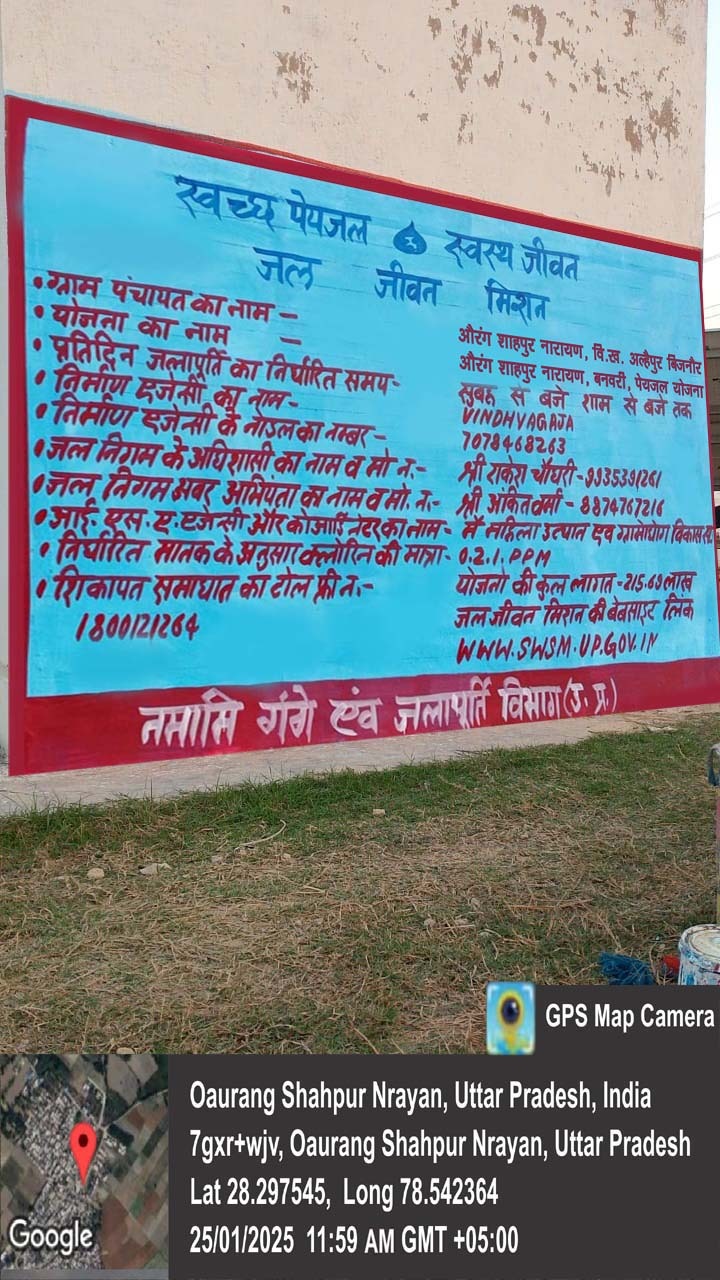 स्वच्छ पेयजल स्वस्थ जीवन
जल जीवन मिशन
• ग्राम पंचायत का नाम –
औरंग शाहपुर नारायण, वि.ख. अल्हैपुर बिजनौर
• योजना का नाम –
औरंग शाहपुर नारायण, बनवरी, पेयजल योजना
• प्रतिदिन जलापूर्ति का निर्धारित समय-
सुबह से बजे शाम से बजे तक
• निर्माण एजेन्सी का नाम-
VINDHVAGAJA
• निर्माण एजेन्सी के नोडल का नम्बर-
7078468263
• जल निगम के अधिशासी का नाम व मो न.-
श्री राकेश चौधरी-9935391261
• जल निगम अवर अभियंता का नाम व मो. न.-
श्री अंकित वर्मा - 8874767216
• आई. एस. ए. एजेन्सी और कोआर्डिनेटर का नाम-
मै महिला उत्थान एवं ग्रामोद्योग विकास
• निर्धारित मानक के अनुसार क्लोरिन की मात्रा-
0.2.1.PPM
• शिकायत समाधान का टोल फ्री न.-
1800121264
योजना की कुल लागत-215.69 लाख
जल जीवन मिशन की बेबसाइट लिंक
WWW.SWSM.UP.GOV.IN
नमामि गंगे एंव जलापूर्ति विभाग (उ.प्र.)
GPS Map Camera
Oaurang Shahpur Nrayan, Uttar Pradesh, India
7gxr+wjv, Oaurang Shahpur Nrayan, Uttar Pradesh
Lat 28.297545, Long 78.542364
25/01/2025 11:59 AM GMT +05:00
Google